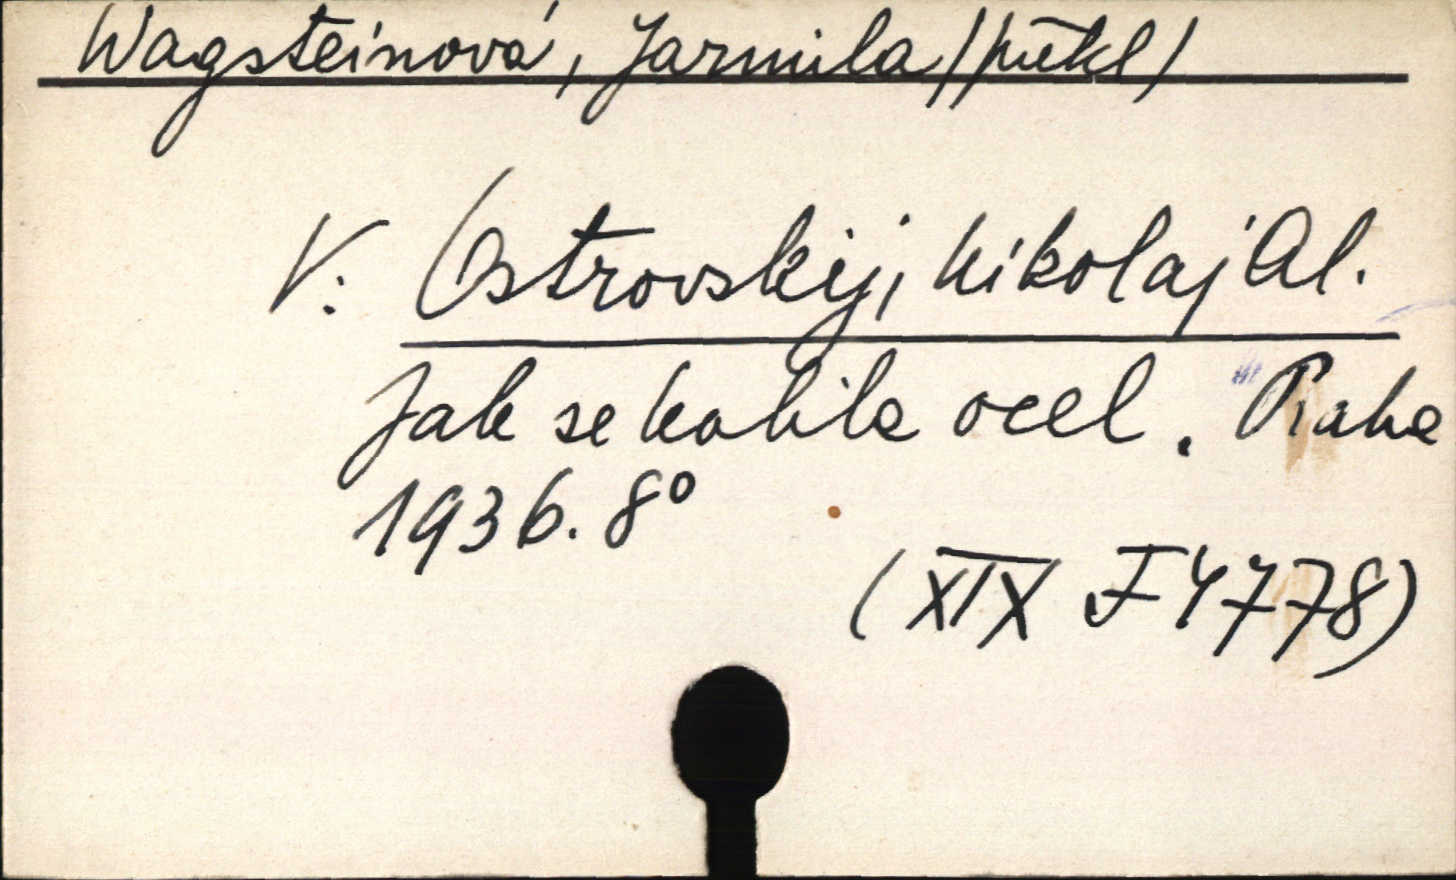 Wagsteinová, Jarmila /překl/
V: Ostrovskij, Nikolaj Al.
Jak se kalila ocel. Praha
1936. 8°
(XIX F 4778)